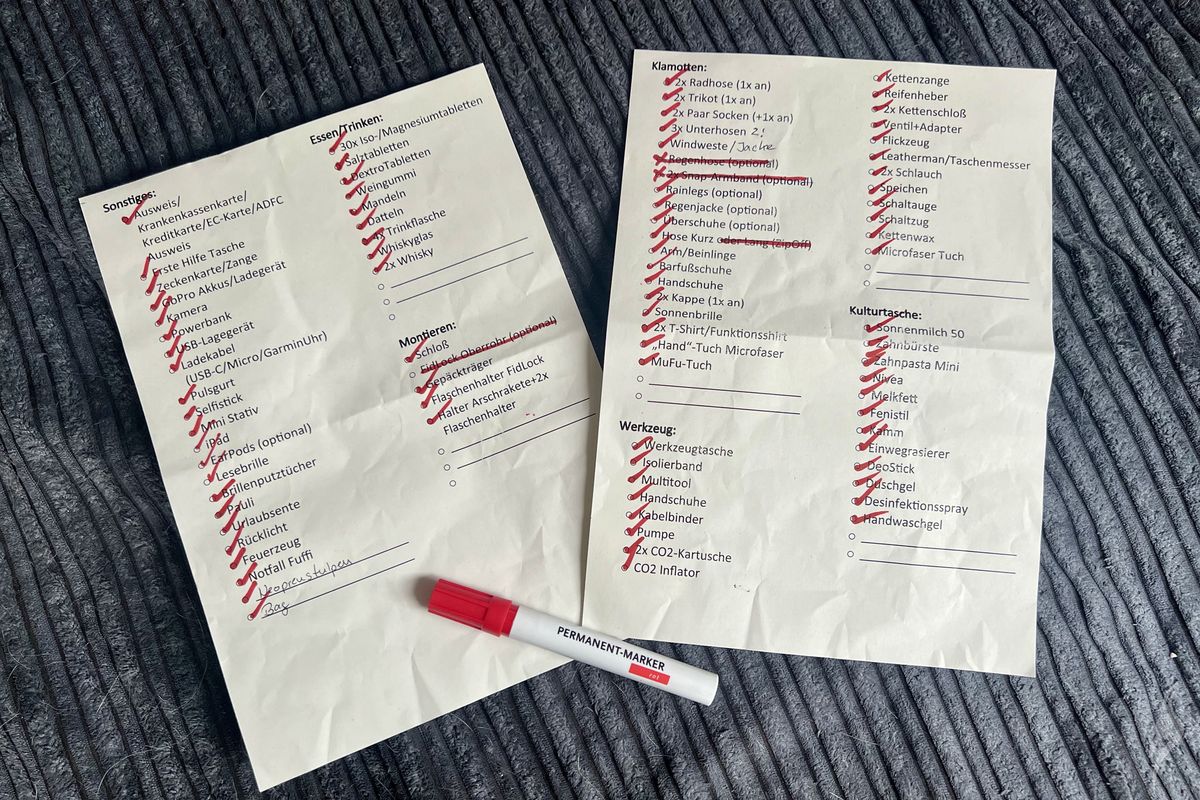 Sonstiges:
Ausweis/
Krankenkassenkarte/
Kreditkarte/EC-Karte/ADFC
Ausweis
Erste Hilfe Tasche
Zeckenkarte/Zange
GoPro Akkus/Ladegerät
Kamera
Powerbank
USB-Lagegerät
Ladekabel
(USB-C/Micro/GarminUhr)
Pulsgurt
Selfistick
Mini Stativ
iPad
EarPods (optional)
Lesebrille
Brillenputztücher
Pauli
Urlaubsente
Rücklicht
Feuerzeug
Notfall Fuffi
Neoprenstulpen
Bag
Essen/Trinken:
30x Iso-/Magnesiumtabletten
Salztabletten
DextroTabletten
Weingummi
Mandeln
Datteln
Trinkflasche
Whiskyglas
2x Whisky
Montieren:
Schloß
FidLock Oberrohr (optional)
Gepäckträger
Flaschenhalter FidLock
Halter Arschrakete+2x
Flaschenhalter
Klamotten:
2x Radhose (1x an)
2x Trikot (1x an)
2x Paar Socken (+1x an)
3x Unterhosen 2!
Windweste/Jacke
Regenhose (optional)
2x Snap-Armband (optional)
Rainlegs (optional)
Regenjacke (optional)
Überschuhe (optional)
Hose Kurz oder Lang (ZipOff)
Arm/Beinlinge
Barfußschuhe
Handschuhe
2x Kappe (1x an)
Sonnenbrille
2x T-Shirt/Funktionsshirt
„Hand“-Tuch Microfaser
MuFu-Tuch
Werkzeug:
Werkzeugtasche
Isolierband
Multitool
Handschuhe
Kabelbinder
Pumpe
2x CO2-Kartusche
CO2 Inflator
Kettenzange
Reifenheber
2x Kettenschloß
Ventil+Adapter
Flickzeug
Leatherman/Taschenmesser
2x Schlauch
Speichen
Schaltauge
Schaltzug
Kettenwax
Microfaser Tuch
Kulturtasche:
Sonnenmilch 50
Zahnbürste
Zahnpasta Mini
Nivea
Melkfett
Fenistil
Kamm
Einwegrasierer
DeoStick
Duschgel
Desinfektionsspray
Handwaschgel
PERMANENT-MARKER
rot